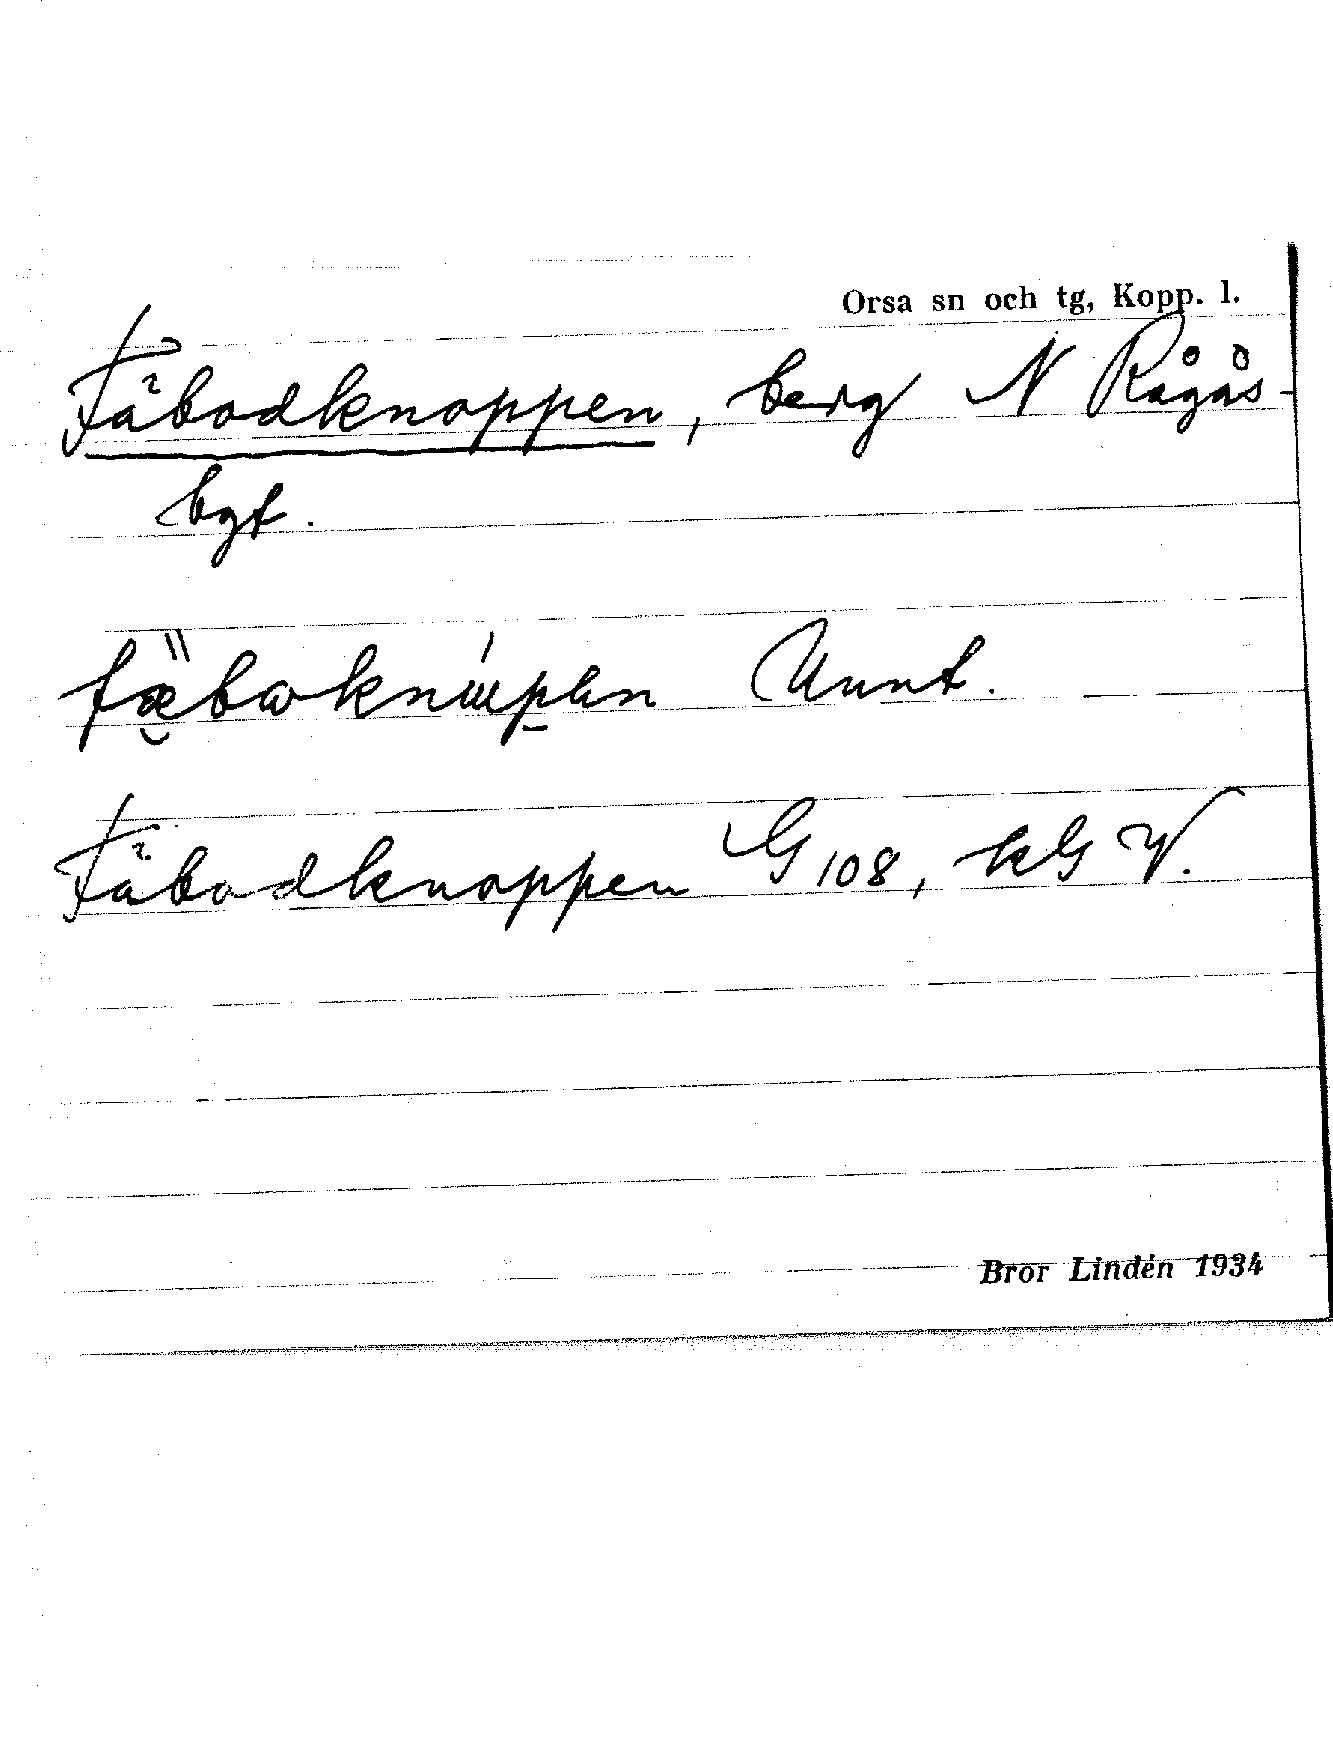 Orsa sn och tg, Kopp. l.
Fäbodknoppen, berg N Rågås-
bgt.
Unnt.
Fäbodknoppen G 108, kG V.
Bror Lindén 1934